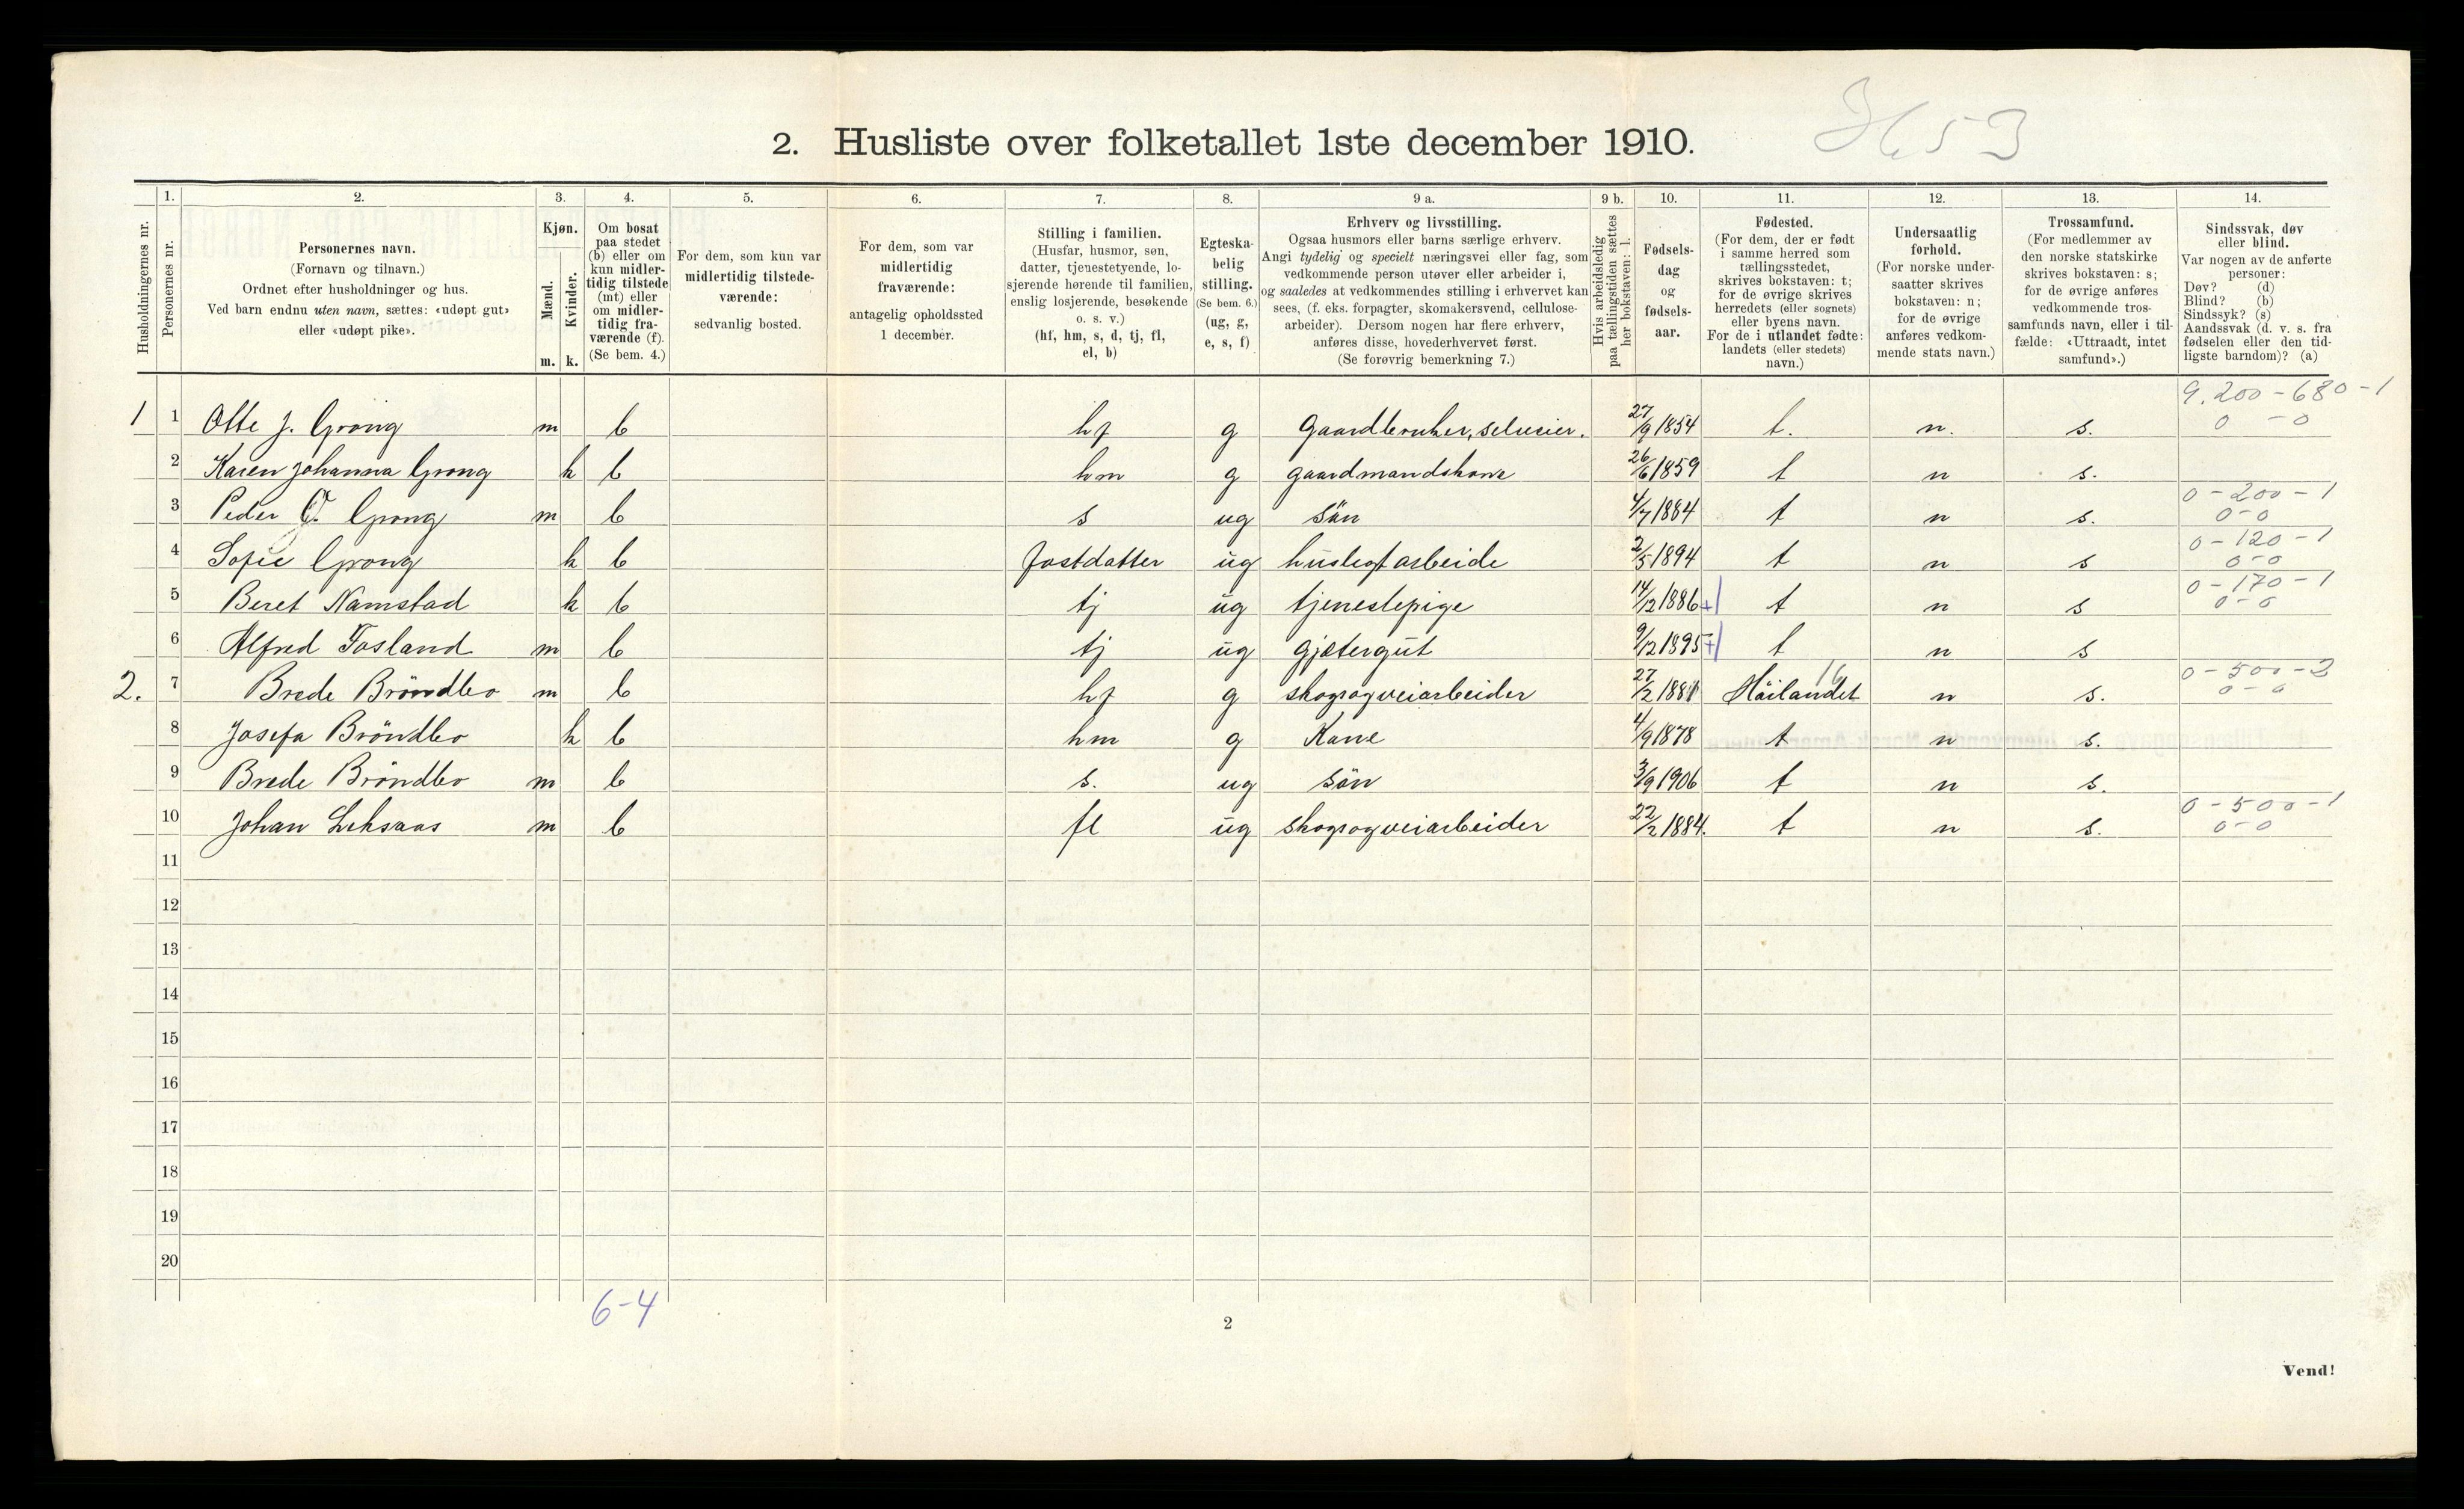 2. Husliste over folketallet 1ste december 1910.
Husholdningernes nr.
1.
Personernes nr.
2.
Personernes navn.
(Fornavn og tilnavn.)
Ordnet efter husholdninger og hus.
Ved barn endnu uten navn, sættes: «udøpt gut»
eller «udøpt pike».
3.
Kjøn.
Mænd.
Kvinder.
m. k.
4.
Om bosat
paa stedet
(b) eller om
kun midler-
tidig tilstede
(mt) eller
om midler-
tidig fra-
værende (f).
(Se bem. 4.)
5.
For dem, som kun var
midlertidig tilstede-
værende:
sedvanlig bosted.
6.
For dem, som var
midlertidig
fraværende:
antagelig opholdssted
1 december.
7.
Stilling i familien.
(Husfar, husmor, søn,
datter, tjenestetyende, lo-
sjerende hørende til familien,
enslig losjerende, besøkende
o. s. v.)
(hf, hm, s, d, tj, fl,
el, b)
8.
Egteska-
belig
stilling.
(Se bem. 6.)
(ug, g,
e, s, f)
9 a.
Erhverv og livsstilling.
Ogsaa husmors eller barns særlige erhverv.
Angi tydelig og specielt næringsvei eller fag, som
vedkommende person utøver eller arbeider i,
og saaledes at vedkommendes stilling i erhvervet kan
sees, (f. eks. forpagter, skomakersvend, cellulose-
arbeider). Dersom nogen har flere erhverv,
anføres disse, hovederhvervet først.
(Se forøvrig bemerkning 7.)
9 b.
Hvis arbeidsledig
paa tællingstiden sættes
her bokstaven: l.
10.
Fødsels-
dag
og
fødsels-
aar.
11.
Fødested.
(For dem, der er født
i samme herred som
tællingsstedet,
skrives bokstaven: t;
for de øvrige skrives
herredets (eller sognets)
eller byens navn.
For de i utlandet fødte:
landets (eller stedets)
navn.)
12.
Undersaatlig
forhold.
(For norske under-
saatter skrives
bokstaven: n;
for de øvrige
anføres vedkom-
mende stats navn.)
13.
Trossamfund.
(For medlemmer av
den norske statskirke
skrives bokstaven: s;
for de øvrige anføres
vedkommende tros-
samfunds navn, eller i til-
fælde: «Uttraadt, intet
samfund».)
14.
Sindssvak, døv
eller blind.
Var nogen av de anførte
personer:
Døv? (d)
Blind? (b)
Sindssyk? (s)
Aandssvak (d. v. s. fra
fødselen eller den tid-
ligste barndom)? (a)
9.200-680-1
1 1 Otte J. Grong m b hf g Gaardbruker, selveier. 27/9 1854 t. n. s. 0-0
2 Karen Johanna Grong k b hm g gaardmandskone 26/6 1859 t n s.
0-200-1
3 Peder O. Grong m b s ug søn 4/7 1884 t n s. 0-0
0-120-1
4 Sofie Grong k b fostdatter ug huslegt arbeide 2/5 1894 t n s 0-0
0-170-1
5 Beret Namstad k b tj ug tjenestepige 14/12 1886 t n s 0-0
6 Alfred Fosland m b tj ug gjetergut 9/12 1895 t n s
16 0-500-2
2. 7 Brede Bröndbo m b hf g skogsogveiarbeider 27/2 1881 Höilandet n s. 0-0
8 Josefa Bröndbo k b hm g Kone 4/9 1878 t n s.
9 Brede Bröndbo m b s. ug søn 3/9 1906 t n s.
0-500-1
10 Johan Leksaas m b fl ug skogsogveiarbeider 22/2 1884. t n s. 0-0
11
12
13
14
15
16
17
18
19
20
6-4
2
Vend!